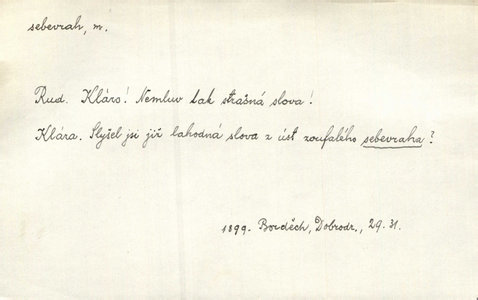 sebevrah, m.
Rud. Kláro! Nemluv tak strašná slova!
Klára. Slyšel jsi již lahodná slova z úst zoufalého sebevraha?
1899. Borděch, Dobrodr., 29. 31.